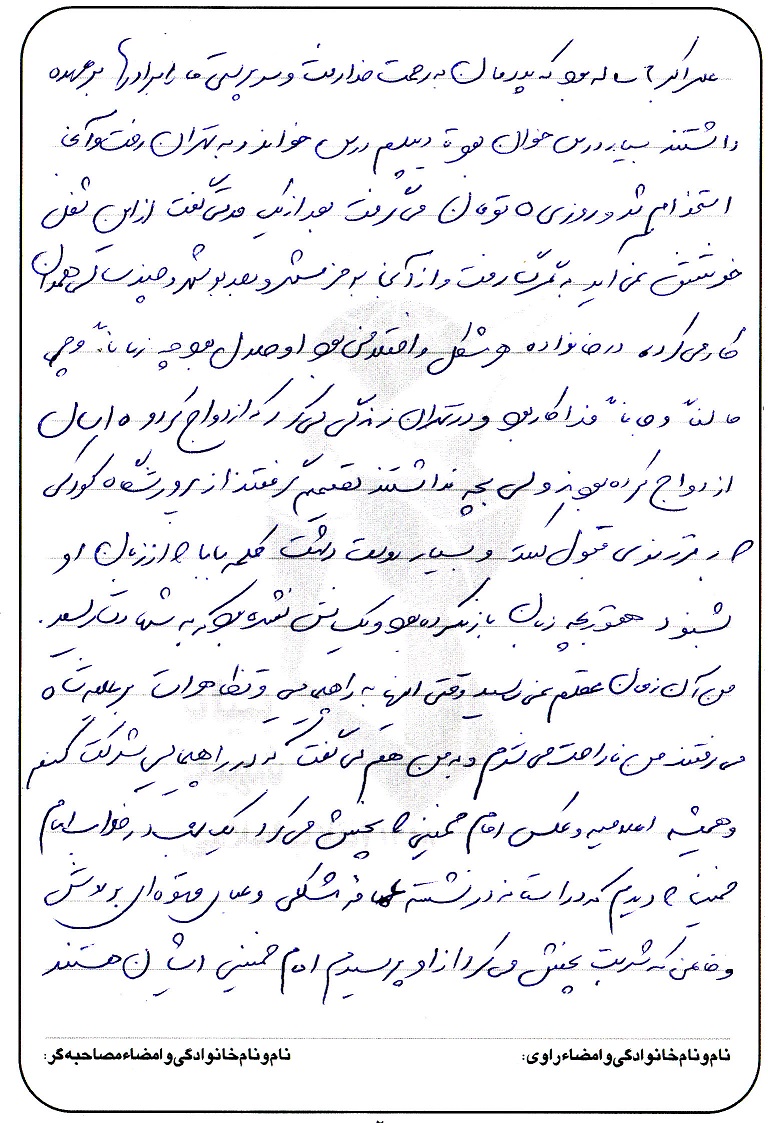 علی اکبر ۶ ساله بود که پدرمان به رحمت خدا رفت و سرپرستی ما را برادرها بر عهده
داشتند بسیار درس خوان بود تا دیپلم درس خواند و به تهران رفت و آنجا
استخدام شد و روزی ۵ تومان می گرفت بعد از یک مدتی گفت از این شغل
خوشش نمی آید به رفت و از آنجا به خرمشهر و بعد بوشهر و چند سالی همدان
کار می کرد، در خانواده هر مشکل و اختلافی بود او حلال بود چه زباناً و چه
مالاً و جاناً فداکار بود و در تهران زندگی می کرد که ازدواج کرد و ۵ سال
ازدواج کرده بودند ولی بچه نداشتند تصمیم گرفتند از پرورشگاه کودکی
را به فرزندی قبول کنند و بسیار دوست داشت کلمه بابا را از زبان او
بشنود هنوز بچه زبان باز نکرده بود و یکسالش نشده بود که به شهادت رسید.
من آن زمان عقلم نمی رسید وقتی اینها به راهپیمایی و تظاهرات بر علیه شاه
می رفتند من ناراحت می شدم و به من هم می گفت که در راهپیمایی شرکت کنم
و همیشه اعلامیه و عکس امام خمینی را پخش می کرد یک شب در خواب امام
خمینی را دیدم که در آستانه در نشسته مشکی و عبای قهوه ای بر دوشش
و خانمی که شربت پخش می کرد از او پرسیدم امام خمینی ایشان هستند
نام و نام خانوادگی و امضاء راوی: نام و نام خانوادگی و امضاء مصاحبه گر:
۲